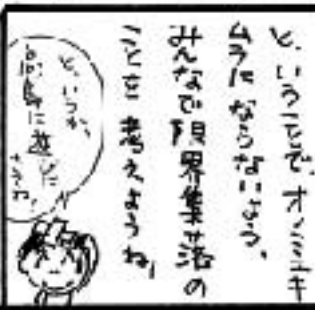 と、いうことで、オノミチ
ムラにならないよう、
みんなで限界集落の
ことを考えようね!
と、いうか、
島に遊びに
きてね!